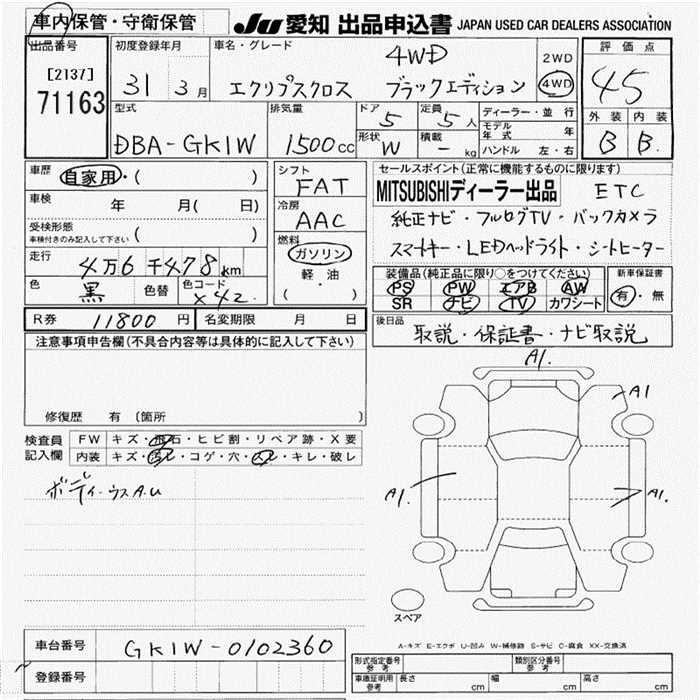 車内保管・守衛保管
JU 愛知 出品申込書 JAPAN USED CAR DEALERS ASSOCIATION
出品番号
[2137]
71163
初度登録年月
31 3月
車名・グレード
4WD
エクリプスクロス ブラックエディション
2WD
4WD
評価点
4.5
外装 内装
B B.
型式
DBA-GK1W
排気量
1500cc
ドア
5
形状
W
定員
5人
積載
- kg
ディーラー・並行
モデル年式 年
ハンドル 左・右
車歴
自家用・( )
車検 年 月( 日)
受検形態
車検付きのみ記入して下さい ( )
走行
4万6千478km
色
黒
色替
色コード
X42.
シフト
FAT
冷房
AAC
燃料
ガソリン
軽・油
( )
セールスポイント(正常に機能するものに限ります)
MITSUBISHIディーラー出品 ETC
純正ナビ・フルセグTV・バックカメラ
スマートキー・LEDヘッドライト・シートヒーター
装備品(純正品に限り○をつけてください)
PS PW エアB AW
SR ナビ TV カワシート
新車保証書
有・無
R券 11800円 名変期限 月 日
後日品
取説・保証書・ナビ取説
注意事項申告欄(不具合内容等は具体的に記入して下さい)
修復歴 有 〔箇所 〕
検査員記入欄
FW キズ・飛石・ヒビ割・リペア跡・X要
内装 キズ・汚レ・コゲ・穴・スレ・キレ・破レ
ボディーウスA.U
A1.
A1
A1.
A1.
スペア
A-キズ E-エクボ U-凹み W-補修跡 S-サビ C-腐食 XX-交換済
車台番号 GK1W-0102360
登録番号
形式指定番号 参考
類別区分番号 参考
車庫証明用 参考 長さ cm 幅 cm 高さ cm